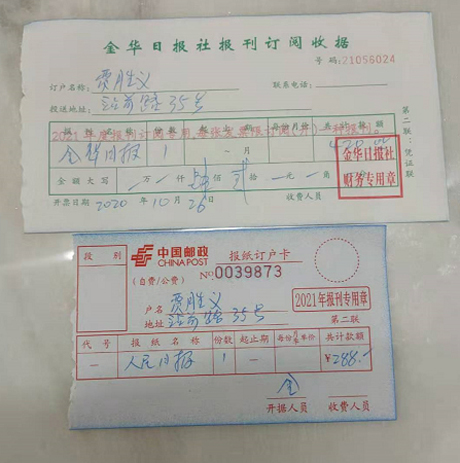 金华日报社报刊订阅收据
号码:21056024
订户名称: 贾胜义 联系电话:
投送地址: 站前路35号
2021年度报刊订阅专用,每张发票限订阅(开)一种报刊。
报刊名称 份数 起止期 每份月价 共计款额
金华日报 1 一月 420.00
金额大写 万 仟 肆佰 贰拾 元 角
金华日报社
财务专用章
开票日期 2020年10月26日 收费人员
第二联:凭证联
段别 中国邮政 报纸订户卡
CHINA POST
(自费/公费) No 0039873
户名 贾胜义
地址 站前路35号
2021年报刊专用章
第二联
代号 报纸名称 份数 起止期 每份月季单价 共计款额
一 人民日报 1 一 ¥288.-
金
开据人员 收费人员